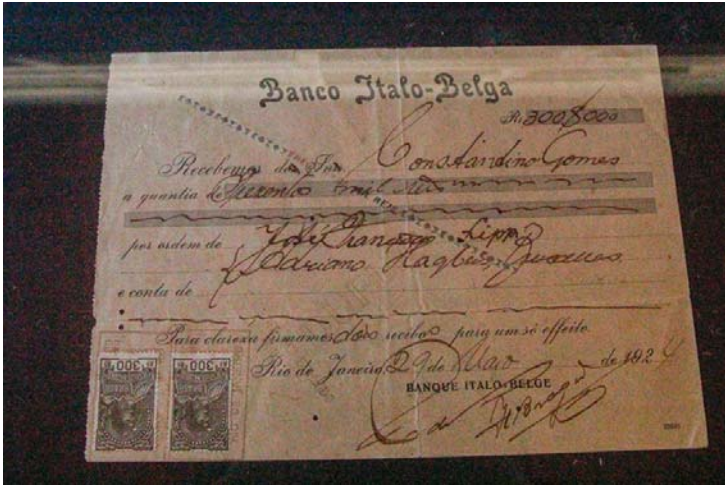 Banco Italo-Belga
Rs. 300$000
Recebemos do Snr. Constantino Gomes
a quantia de Trezentos mil réis
por ordem de José Francisco Lippi
Adriano
e conta de
Para clareza firmamos dois recibos para um só effeito.
Rio de Janeiro, 29 de Maio de 1924
BANQUE ITALO-BELGE
300
300